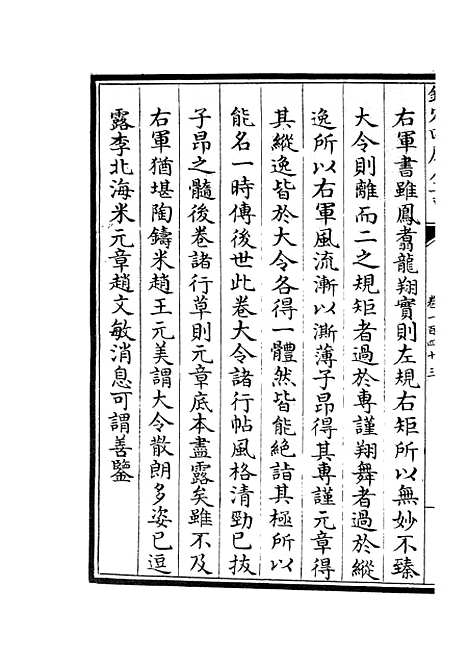 右軍書雖鳳翥龍翔實則左規右矩所以無妙不臻
大令則離而二之規矩者過於專謹翔舞者過於縱
逸所以右軍風流漸以澌薄子昂得其專謹元章得
其縱逸皆於大令各得一體然皆能絶詣其極所以
能名一時傳後世此卷大令諸行帖風格清勁已拔
子昂之髓後卷諸行草則元章底本盡露矣雖不及
右軍猶堪陶鑄米趙王元美謂大令散朗多姿已逗
露李北海米元章趙文敏消息可謂善鑒
卷一百四十三